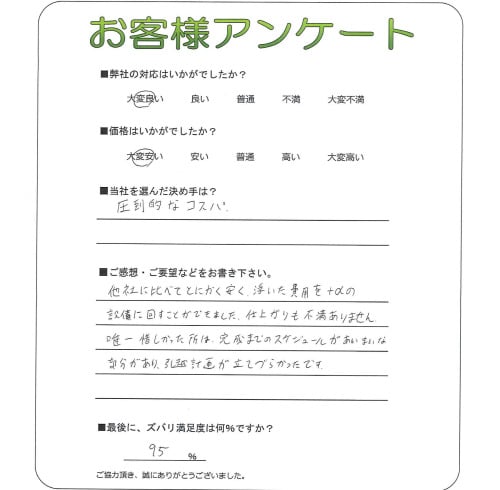 お客様アンケート
■弊社の対応はいかがでしたか?
大変良い 良い 普通 不満 大変不満
■価格はいかがでしたか?
大変安い 安い 普通 高い 大変高い
■当社を選んだ決め手は?
圧倒的なコスパ.
■ご感想・ご要望などをお書き下さい。
他社に比べてとにかく安く、浮いた費用を+αの
設備に回すことができました。仕上がりも不満ありません
唯一惜しかった所は、完成までのスケジュールがあいまいな
部分があり、引越計画が立てづらかったです。
■最後に、ズバリ満足度は何%ですか?
95 %
ご協力頂き、誠にありがとうございました。